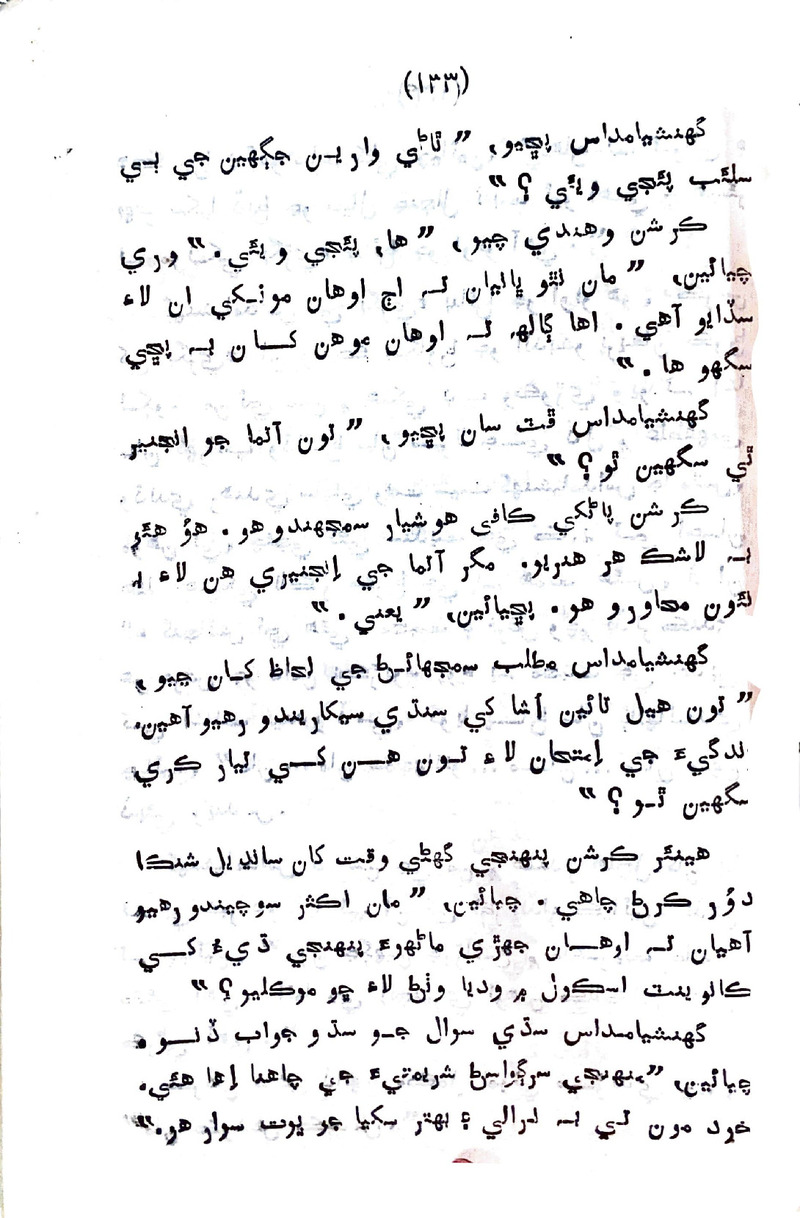 (١٣٣)
گهنشيامداس پڇيو، ”ٽاڻي وارين جڳهين جي بي
سلئب پئجي ويئي ؟“
ڪرشن وهندي چيو، ”ها، پئجي ويئي.“ وري
چيائين، ”مان نٿو ڀانيان تہ اڄ اوهان مونکي ان لاءِ
سڏايو آهي. اها ڳالهہ تہ اوهان موهن کان بہ پڇي
سگهو ها.“
گهنشيامداس ڦٽ سان پڇيو، ”تون آتما جو انجنير
ٿي سگهين ٿو؟“
ڪرشن پاڻکي ڪافي هوشيار سمجهندو هو. هؤ هئڻ
بہ لاشڪ هر هنريو. مگر آتما جي اِنجنيري هن لاءِ هڪ
نئون محاورو هو. پڇيائين، ”يعني.“
گهنشيامداس مطلب سمجهائڻ جي لحاظ کان چيو،
”تون هيل تائين آشا کي سنڌي سيکاريندو رهيو آهين.
زندگيءَ جي اِمتحان لاءِ تون هن کي تيار ڪري
سگهين ٿو؟“
هينئر ڪرشن پنهنجي گهڻي وقت کان سانڍيل شنڪا
دؤر ڪرڻ چاهي. چيائين، ”مان اڪثر سوچيندو رهيو
آهيان تہ اوهان جهڙي ماڻهوءَ پنهنجي ڌيءَ کي
ڪانوينٽ اسڪول ۾ وديا وٺڻ لاءِ ڇو موڪليو؟“
گهنشيامداس سڌي سوال جو سڌو جواب ڏنو.
چيائين، ”منهنجي سرڳواسڻ شريمتيءَ جي چاهنا اِها هئي.
خود مون تي بہ نرالي ۽ بهتر سکيا جو ڀوت سوار هو.“